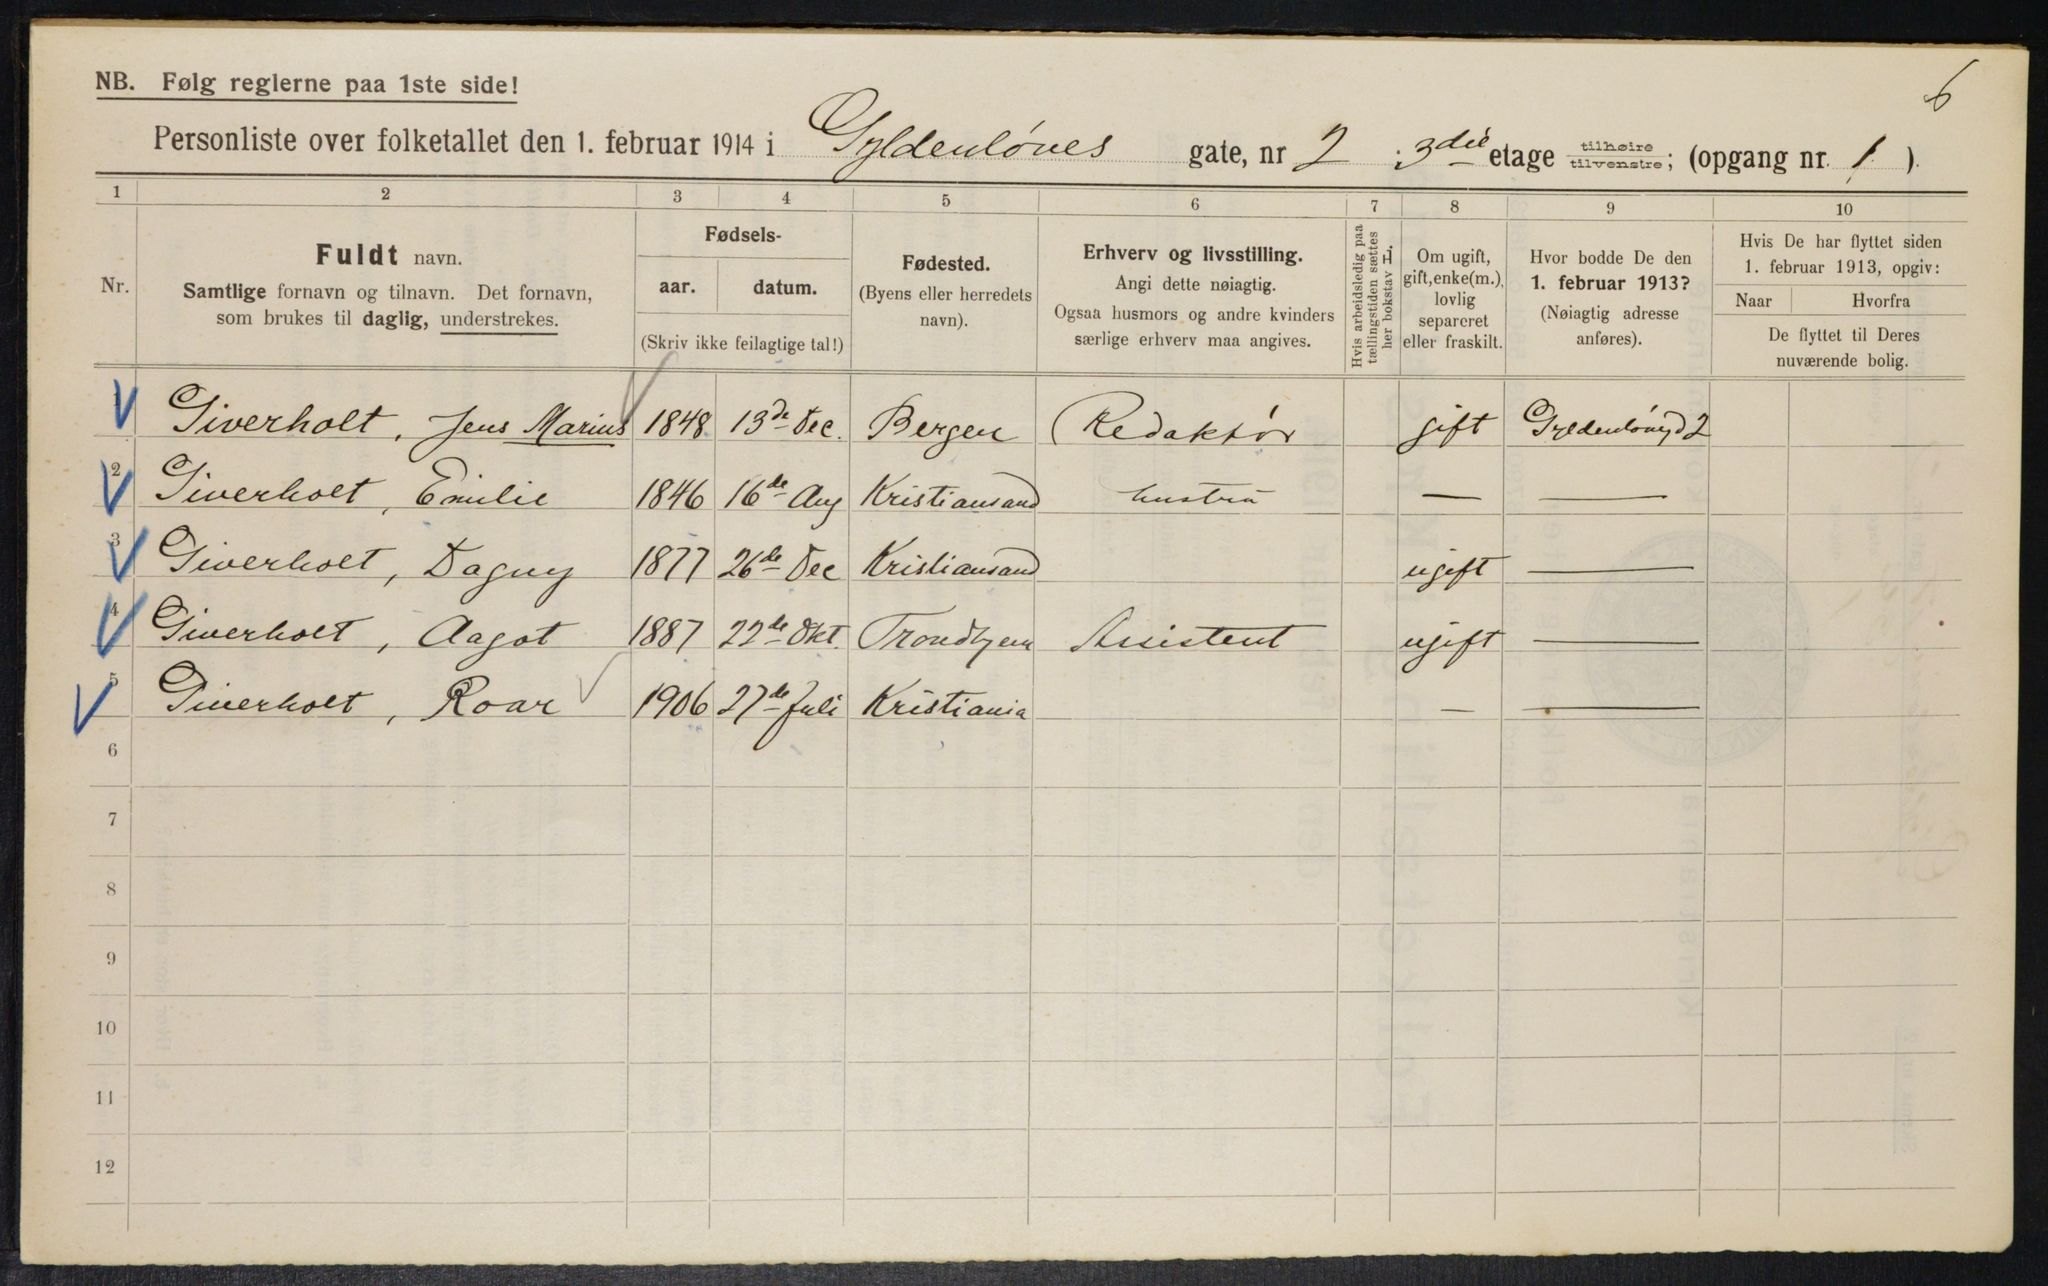 6
NB. Følg reglerne paa 1ste side!
Personliste over folketallet den 1. februar 1914 i Gyldenløves gate, nr 2 3die etage tilhøire tilvenstre; (opgang nr. 1).
1 2 3 4 5 6 7 8 9 10
Nr.
Fuldt navn.
Samtlige fornavn og tilnavn. Det fornavn,
som brukes til daglig, understrekes.
Fødsels-
aar. datum.
(Skriv ikke feilagtige tal!)
Fødested.
(Byens eller herredets
navn).
Erhverv og livsstilling.
Angi dette nøiagtig.
Ogsaa husmors og andre kvinders
særlige erhverv maa angives.
Hvis arbeidsledig paa
tællingstiden sættes
her bokstav L.
Om ugift,
gift, enke(m.),
lovlig
separeret
eller fraskilt.
Hvor bodde De den
1. februar 1913?
(Nøiagtig adresse
anføres).
Hvis De har flyttet siden
1. februar 1913, opgiv:
Naar Hvorfra
De flyttet til Deres
nuværende bolig.
Giverholt, Jens Marius 1848 13de Dec. Bergen Redaktør gift Gyldenløvgd 2
2 Giverholt, Emilie 1846 16de Aug Kristiansand hustru — —
3 Giverholt, Dagny 1877 26de Dec Kristiansand ugift —
4 Giverholt, Aagot 1887 22de Okt. Trondhjem Assistent ugift —
5 Giverholt, Roar 1906 27de Juli Kristiania — —
6
7
8
9
10
11
12